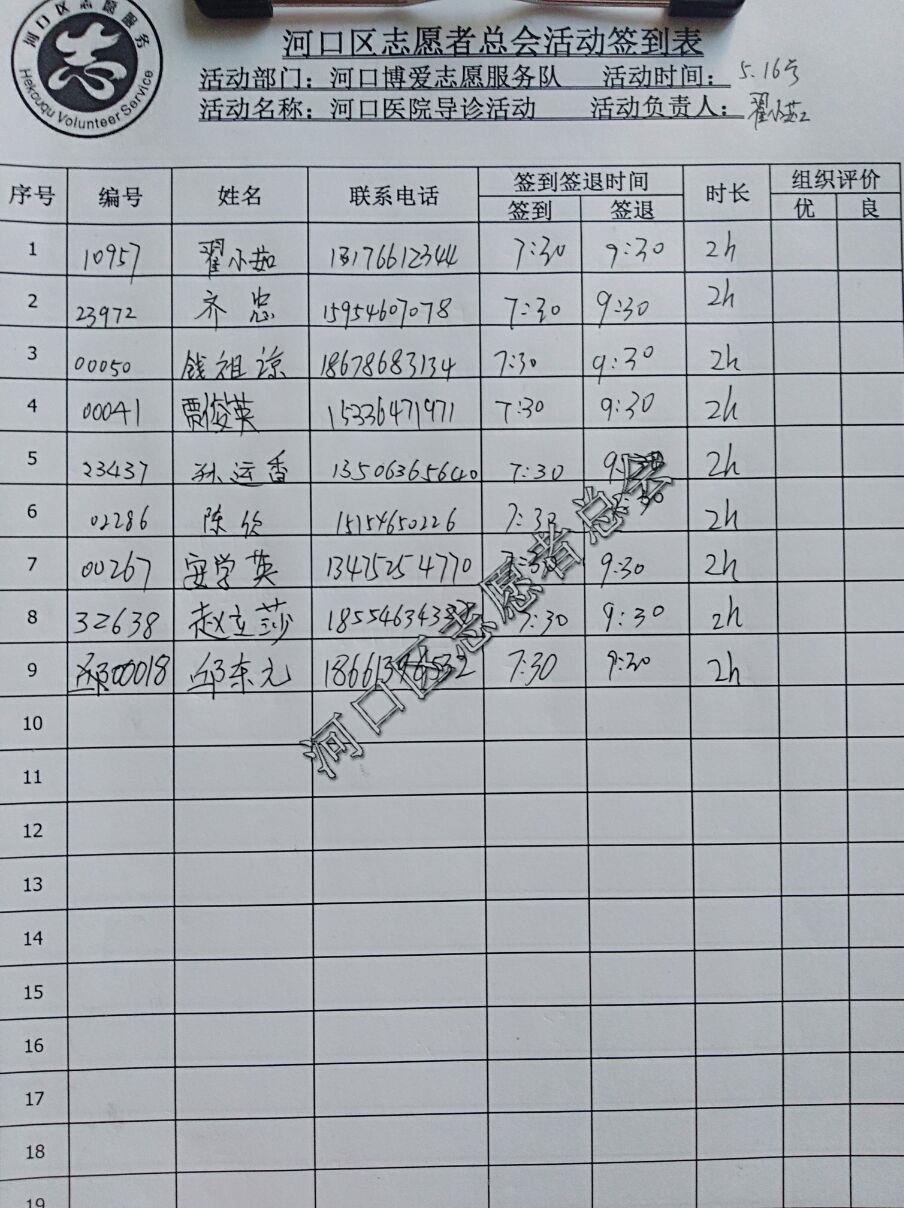 河口区志愿服务
Hekouqu Volunteer Service
志
河口区志愿者总会活动签到表
活动部门：河口博爱志愿服务队 活动时间：5.16号
活动名称：河口医院导诊活动 活动负责人：翟小茹
序号 编号 姓名 联系电话 签到签退时间 时长 组织评价
签到 签退 优 良
1 10957 翟小茹 13176612344 7:30 9:30 2h
2 23972 齐忠 15954607078 7:30 9:30 2h
3 00050 钱祖谅 18678683134 7:30 9:30 2h
4 00041 贾俊英 15336471971 7:30 9:30 2h
5 23437 孙运香 13506365640 7:30 2h
6 02286 陈欣 15154650226 7:30 2h
7 00267 安学英 13415254770 7:30 9:30 2h
8 32638 赵立莎 7:30 9:30 2h
9 00018 邱东元 7:30 9:30 2h
10
11
12
13
14
15
16
17
18
19
河口区志愿者总会